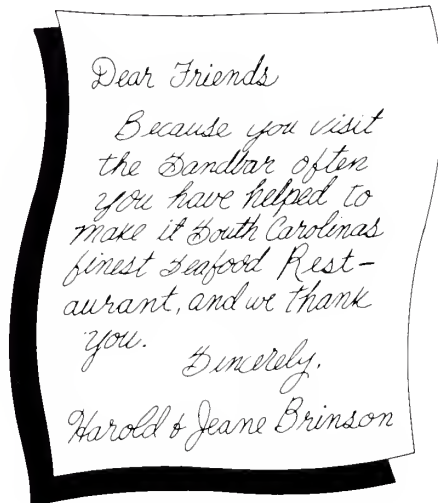 Dear Friends
Because you visit
the Sandbar often
you have helped to
make it South Carolinas
finest Seafood Rest-
aurant, and we thank
you.
Sincerely,
Harold & Jeane Brinson